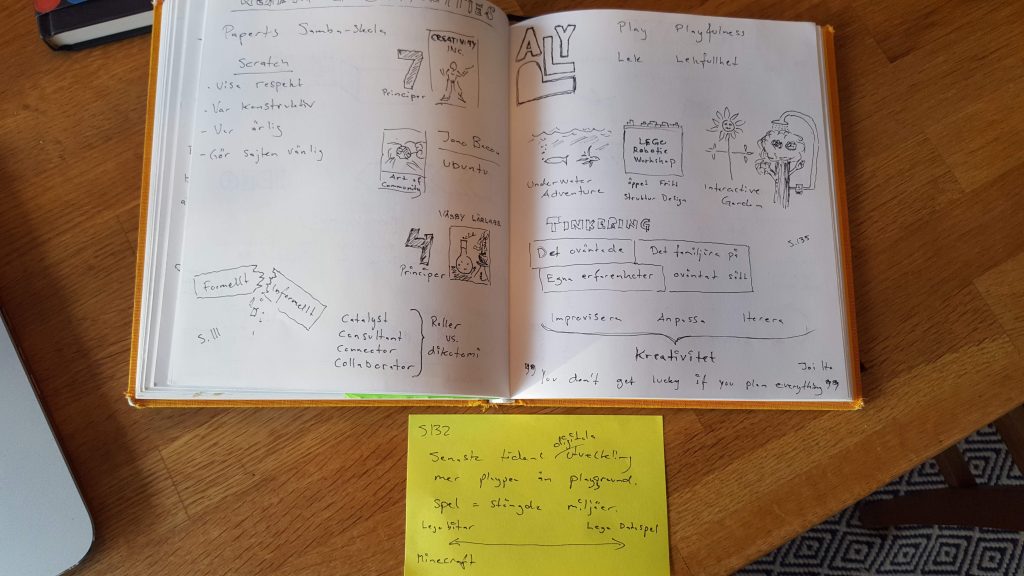 Paperts Samba-skola
Scratch
- Visa respekt
- Var konstruktiv
- Var ärlig
- Gör sajten vänlig
7
Principer
CREATIVITY
INC
Art of
Community
Jono Bacon
Ubuntu
VÄSBY LÄRLABB
4
Principer
Formellt
Informellt
S.111
Catalyst
Consultant
Connector
Collaborator
Roller
vs.
dikotomi
PLAY
Play Playfulness
Lek Lekfullhet
Underwater
Adventure
LEGO
Robotic
Workshop
Öppet Fritt
Struktur Design
Interactive
Garden
TINKERING
S.135
Det oväntade
Det familjära på
oväntat sätt
Egna erfarenheter
Improvisera Anpassa Iterera
Kreativitet
Joi Ito
"You don't get lucky if you plan everything"
S132
digitala
Senaste tidens utveckling
mer playpen än playground.
Spel = stängda miljöer.
Legobitar
Lego Dataspel
Minecraft